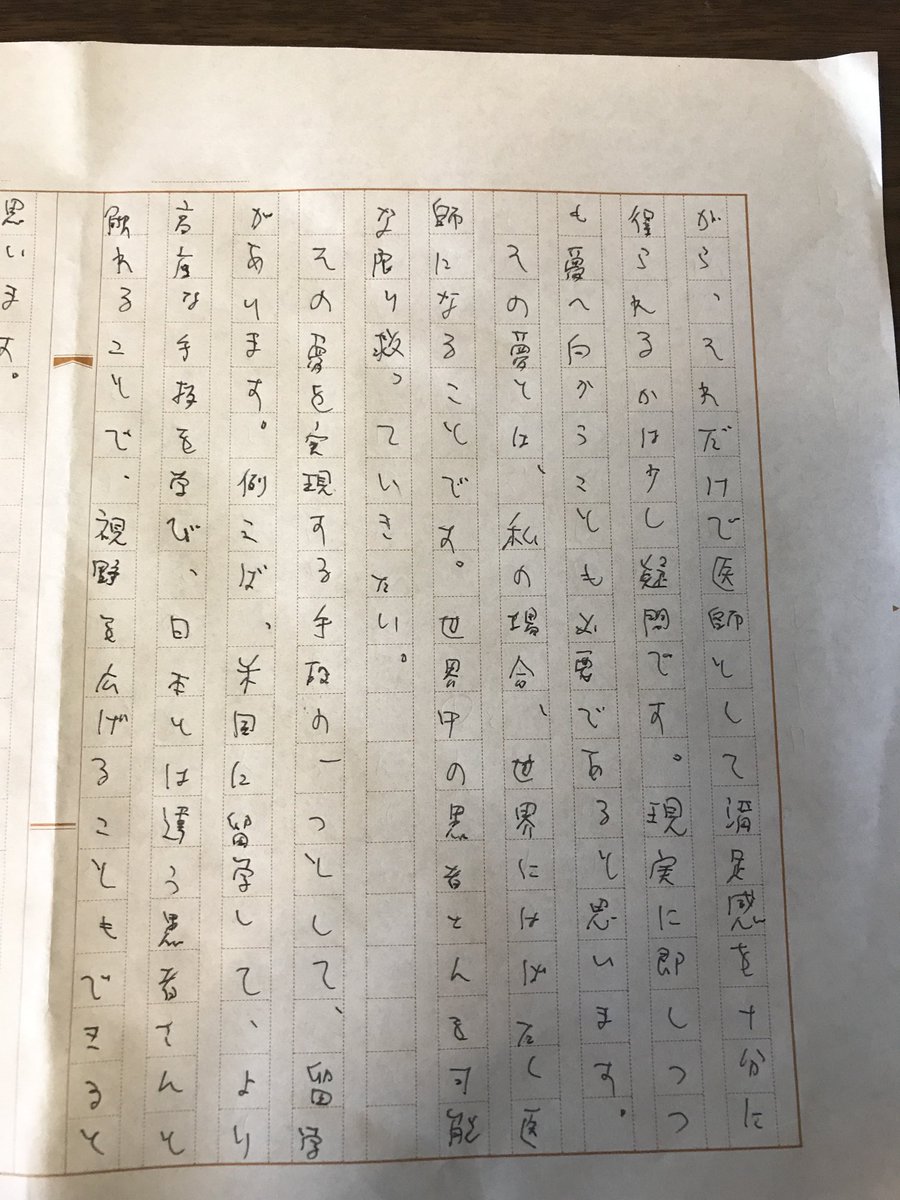 がら、それだけで医師として満足感を十分に
得られるかは少し疑問です。現実に即しつつ
も夢へ向かうことも必要であると思います。
その夢とは、私の場合、世界にはばたく医
師になることです。世界中の患者さんを可能
な限り救っていきたい。
その夢を実現する手段の一つとして、留学
があります。例えば、米国に留学して、より
高度な手技を学び、日本とは違う患者さんと
触れることで、視野を広げることもできると
思います。